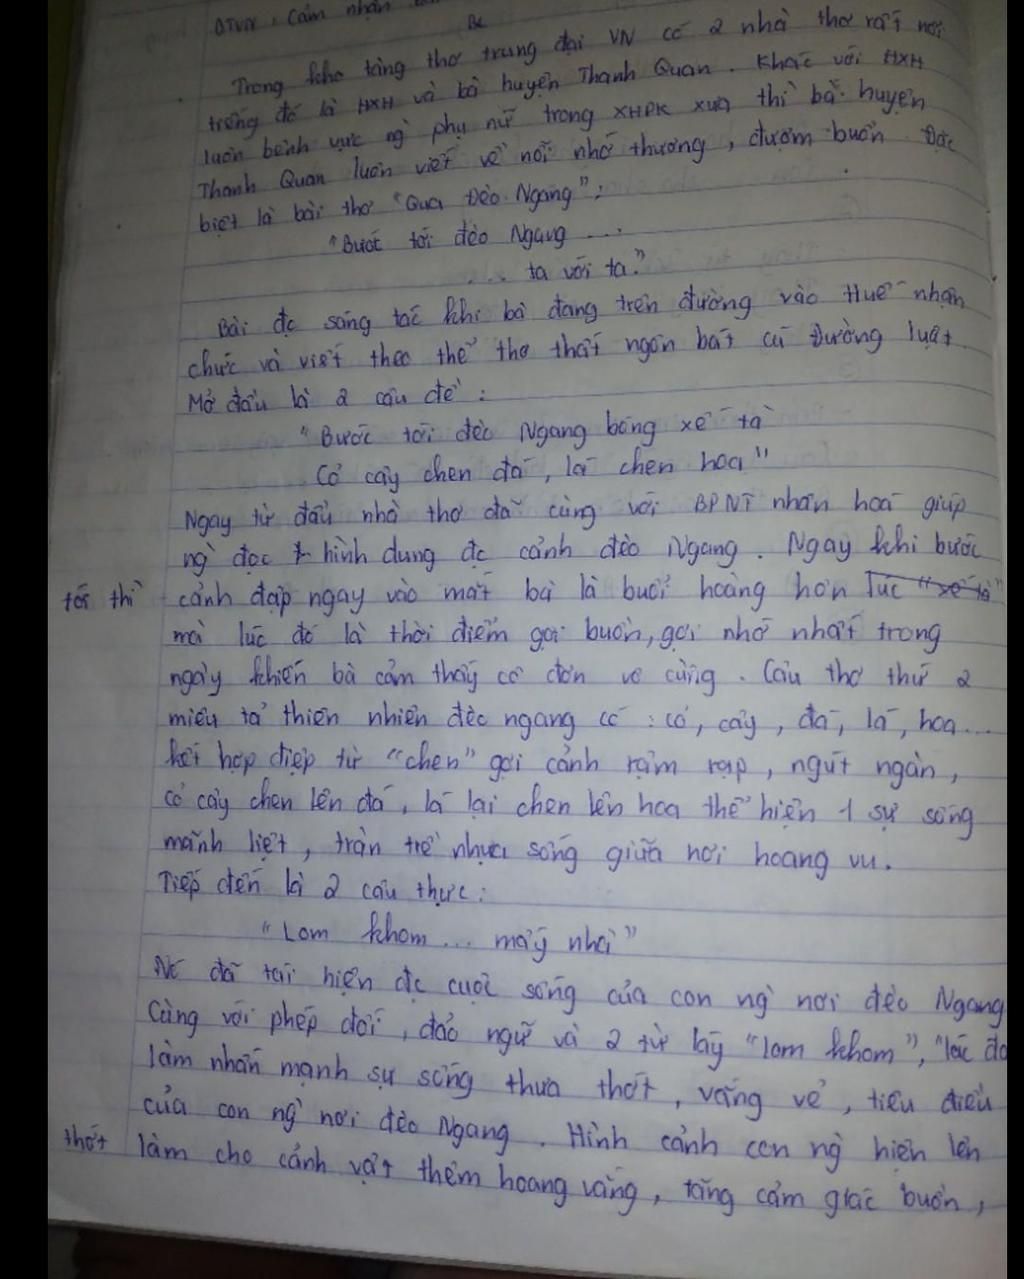 ĐTVN : Cảm nhận
Bc
Trong kho tàng thơ trung đại VN có 2 nhà thơ rất nổi
tiếng đó là HXH và bà huyện Thanh Quan. Khác với HXH
luôn bênh vực ng̀ phụ nữ trong XHPK xưa thì bà huyện
Thanh Quan luôn viết về nỗi nhớ thương, đượm buồn. Đặc
biệt là bài thơ "Qua Đèo Ngang":
"Bước tới đèo Ngang ...
... ta với ta."
Bài đc sáng tác khi bà đang trên đường vào Huế nhận
chức và viết theo thể thơ thất ngôn bát cú Đường luật.
Mở đầu là 2 câu đề :
"Bước tới đèo Ngang bóng xế tà
Cỏ cây chen đá, lá chen hoa"
Ngay từ đầu nhà thơ đã cùng với BPNT nhân hoá giúp
ng̀ đọc hình dung đc cảnh đèo Ngang. Ngay khi bước
tới thì cảnh đập ngay vào mắt bà là buổi hoàng hôn lúc "xế tà"
mà lúc đó là thời điểm gợi buồn, gợi nhớ nhất trong
ngày khiến bà cảm thấy cô đơn vô cùng. Câu thơ thứ 2
miêu tả thiên nhiên đèo ngang có : cỏ, cây, đá, lá, hoa...
kết hợp điệp từ "chen" gợi cảnh rậm rạp, ngút ngàn,
cỏ cây chen lên đá, lá lại chen lên hoa thể hiện 1 sự sống
mãnh liệt, tràn trề nhựa sống giữa nơi hoang vu.
Tiếp đến là 2 câu thực :
"Lom khom ... mấy nhà"
Nó đã tái hiện đc cuộc sống của con ng̀ nơi đèo Ngang
Cùng với phép đối, đảo ngữ và 2 từ láy "lom khom", "lác đá
làm nhấn mạnh sự sống thưa thớt, vắng vẻ, tiêu điều
của con ng̀ nơi đèo Ngang. Hình cảnh con ng̀ hiện lên
thớt làm cho cảnh vật thêm hoang vắng, tăng cảm giác buồn,